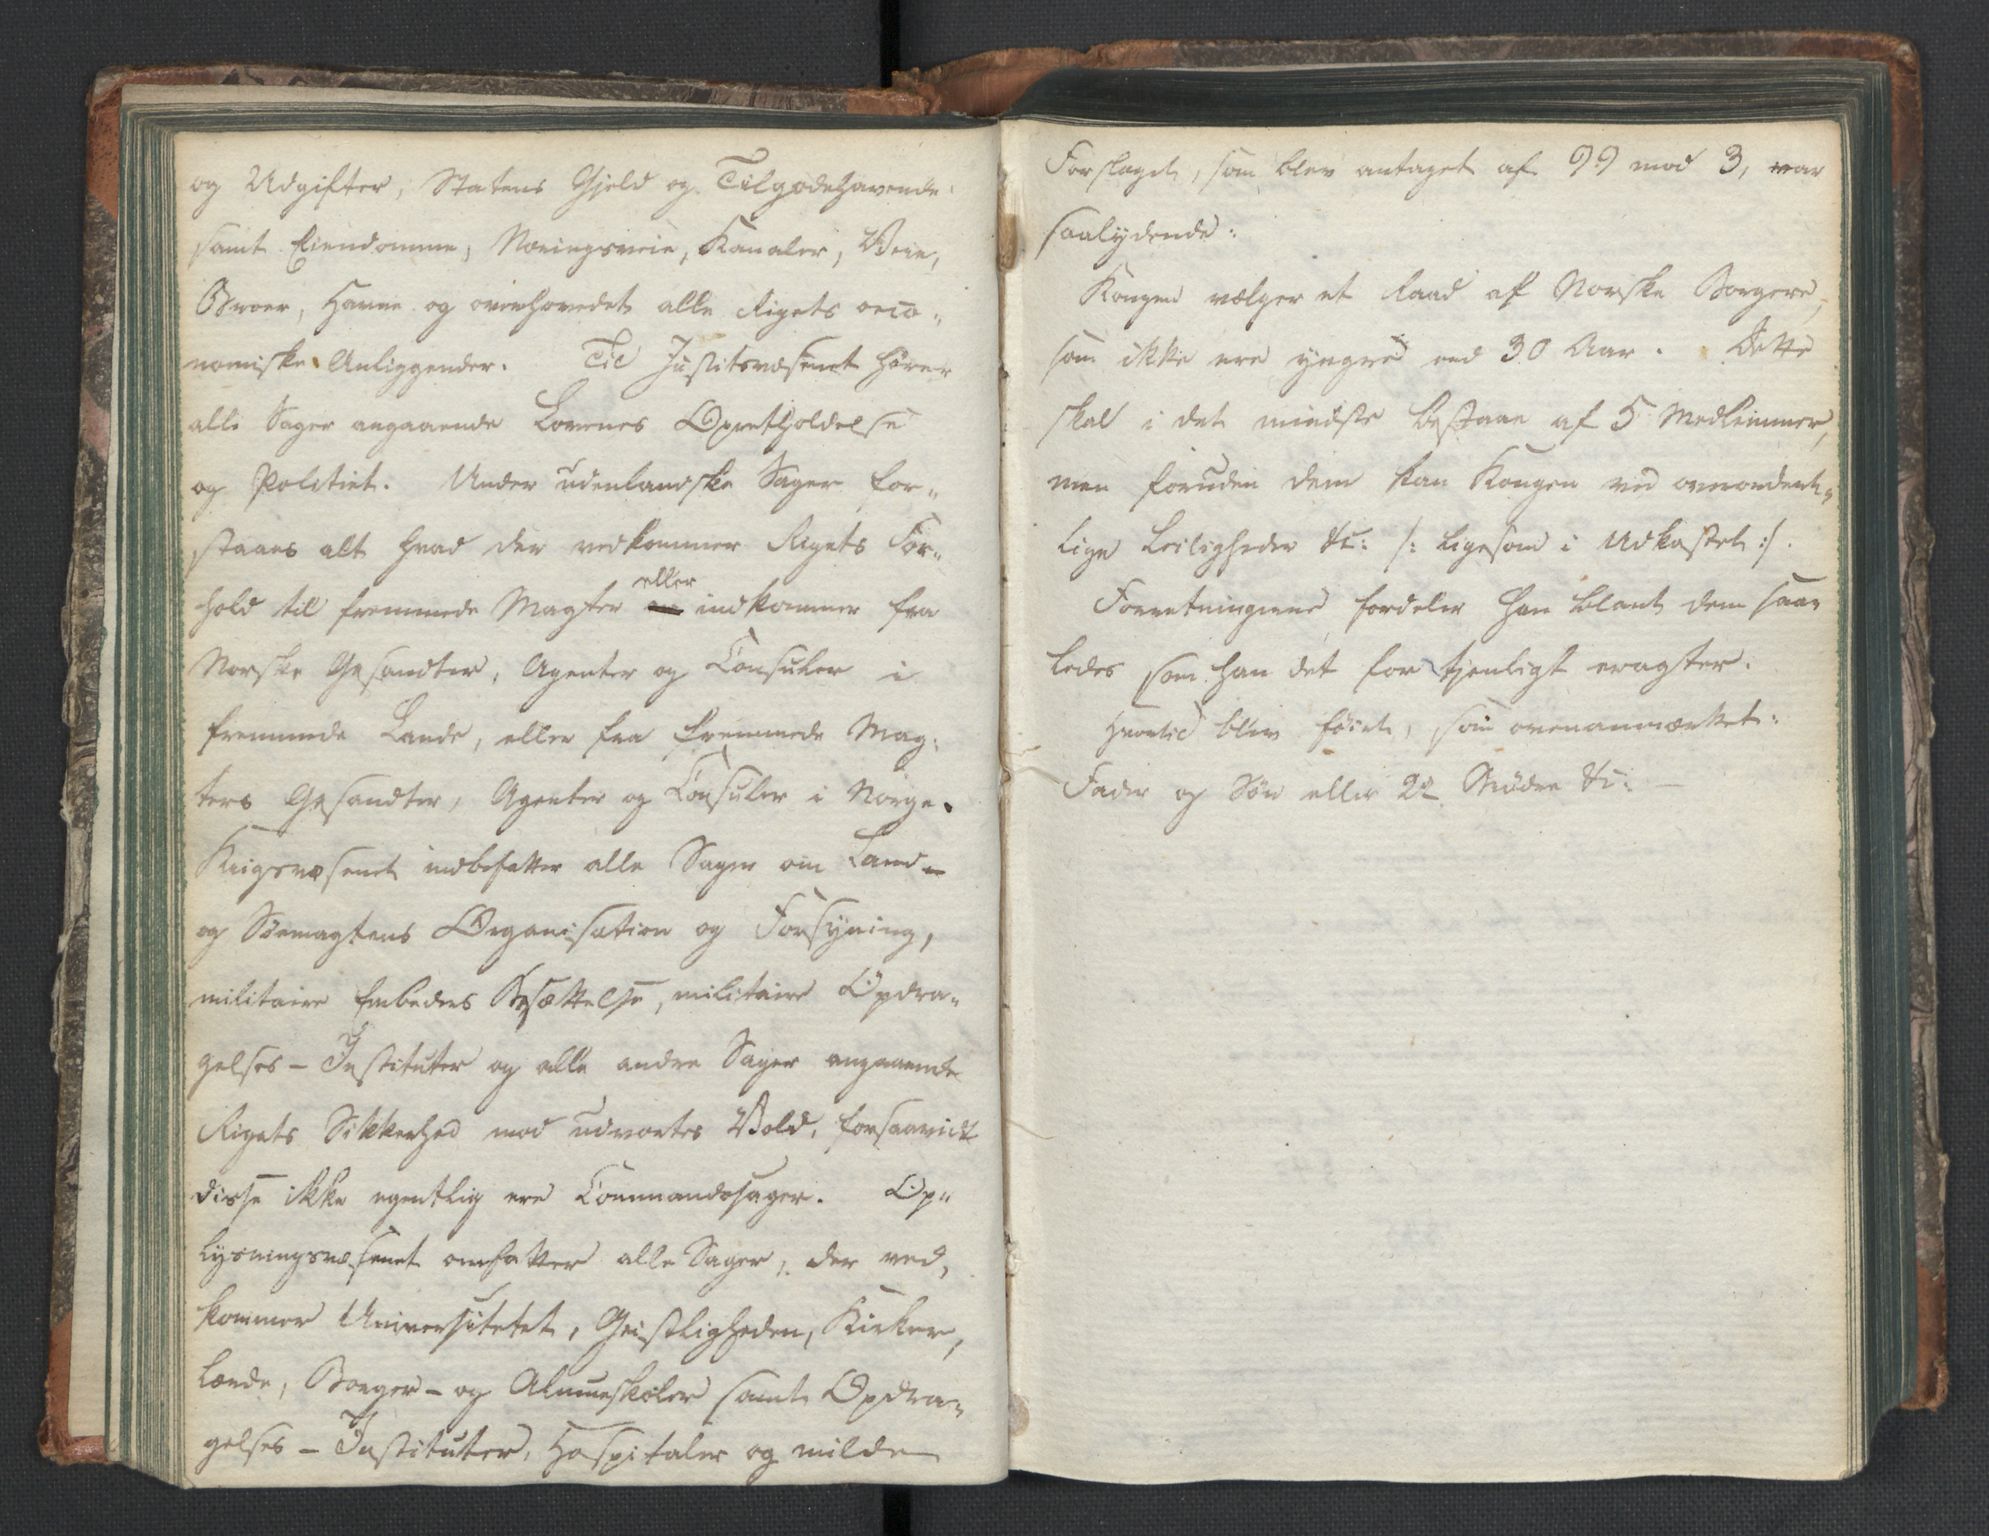 og Udgifter, Statens Gjeld og Tilgodehavende
samt Eiendomme, Næringsveie, Kanaler, Veie,
Broer, Havne og overhovedet alle Rigets oeco-
nomiske Anliggender. Til Justitsvæsenet hører
alle Sager angaaende Lovenes Opretholdelse
og Politiet. Under udenlandske Sager for-
staaes alt hvad der vedkommer Rigets For-
hold til fremmede Magter eller indkommer fra
Norske Gesandter, Agenter og Consuler i
fremmede Lande, eller fra fremmede Mag-
ters Gesandter, Agenter og Consuler i Norge.
Krigsvæsenet indbefatter alle Sager om Land-
og Søemagtens Organisation og Forsyning,
militaire Embeders Besættelse, militaire Opdra-
gelses-Instituter og alle andre Sager angaaende
Rigets Sikkerhed mod udvortes Vold, forsaavidt
disse ikke egentlig ere Commandosager. Op-
lysningsvæsenet omfatter alle Sager, der ved-
kommer Universitetet, Geistligheden, Kirker,
Lærde, Borger- og Almueskoler samt Opdra-
gelses-Instituter, Hospitaler og milde
Forslaget, som blev antaget af 99 mod 3, var
saalydende:
Kongen vælger et Raad af Norske Borgere,
som ikke ere yngre end 30 Aar. Dette
skal i det mindste bestaae af 5 Medlemmer,
men foruden dem kan Kongen ved overordent-
lige Leiligheder &c: /: ligesom i Udkastet :/.
Forretningerne fordeler han blant dem saa-
ledes som han det for tjenligt eragter.
Hvortil blev føiet, som ovenanmærket:
Fader og Søn eller 2de Brødre &c: —